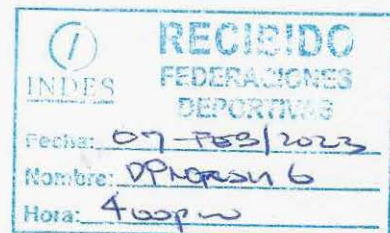 RECIBIDO
INDES
FEDERACIONES
DEPORTIVAS
Fecha: 07-FEB/2023
Nombre:
Hora: 4:00pm